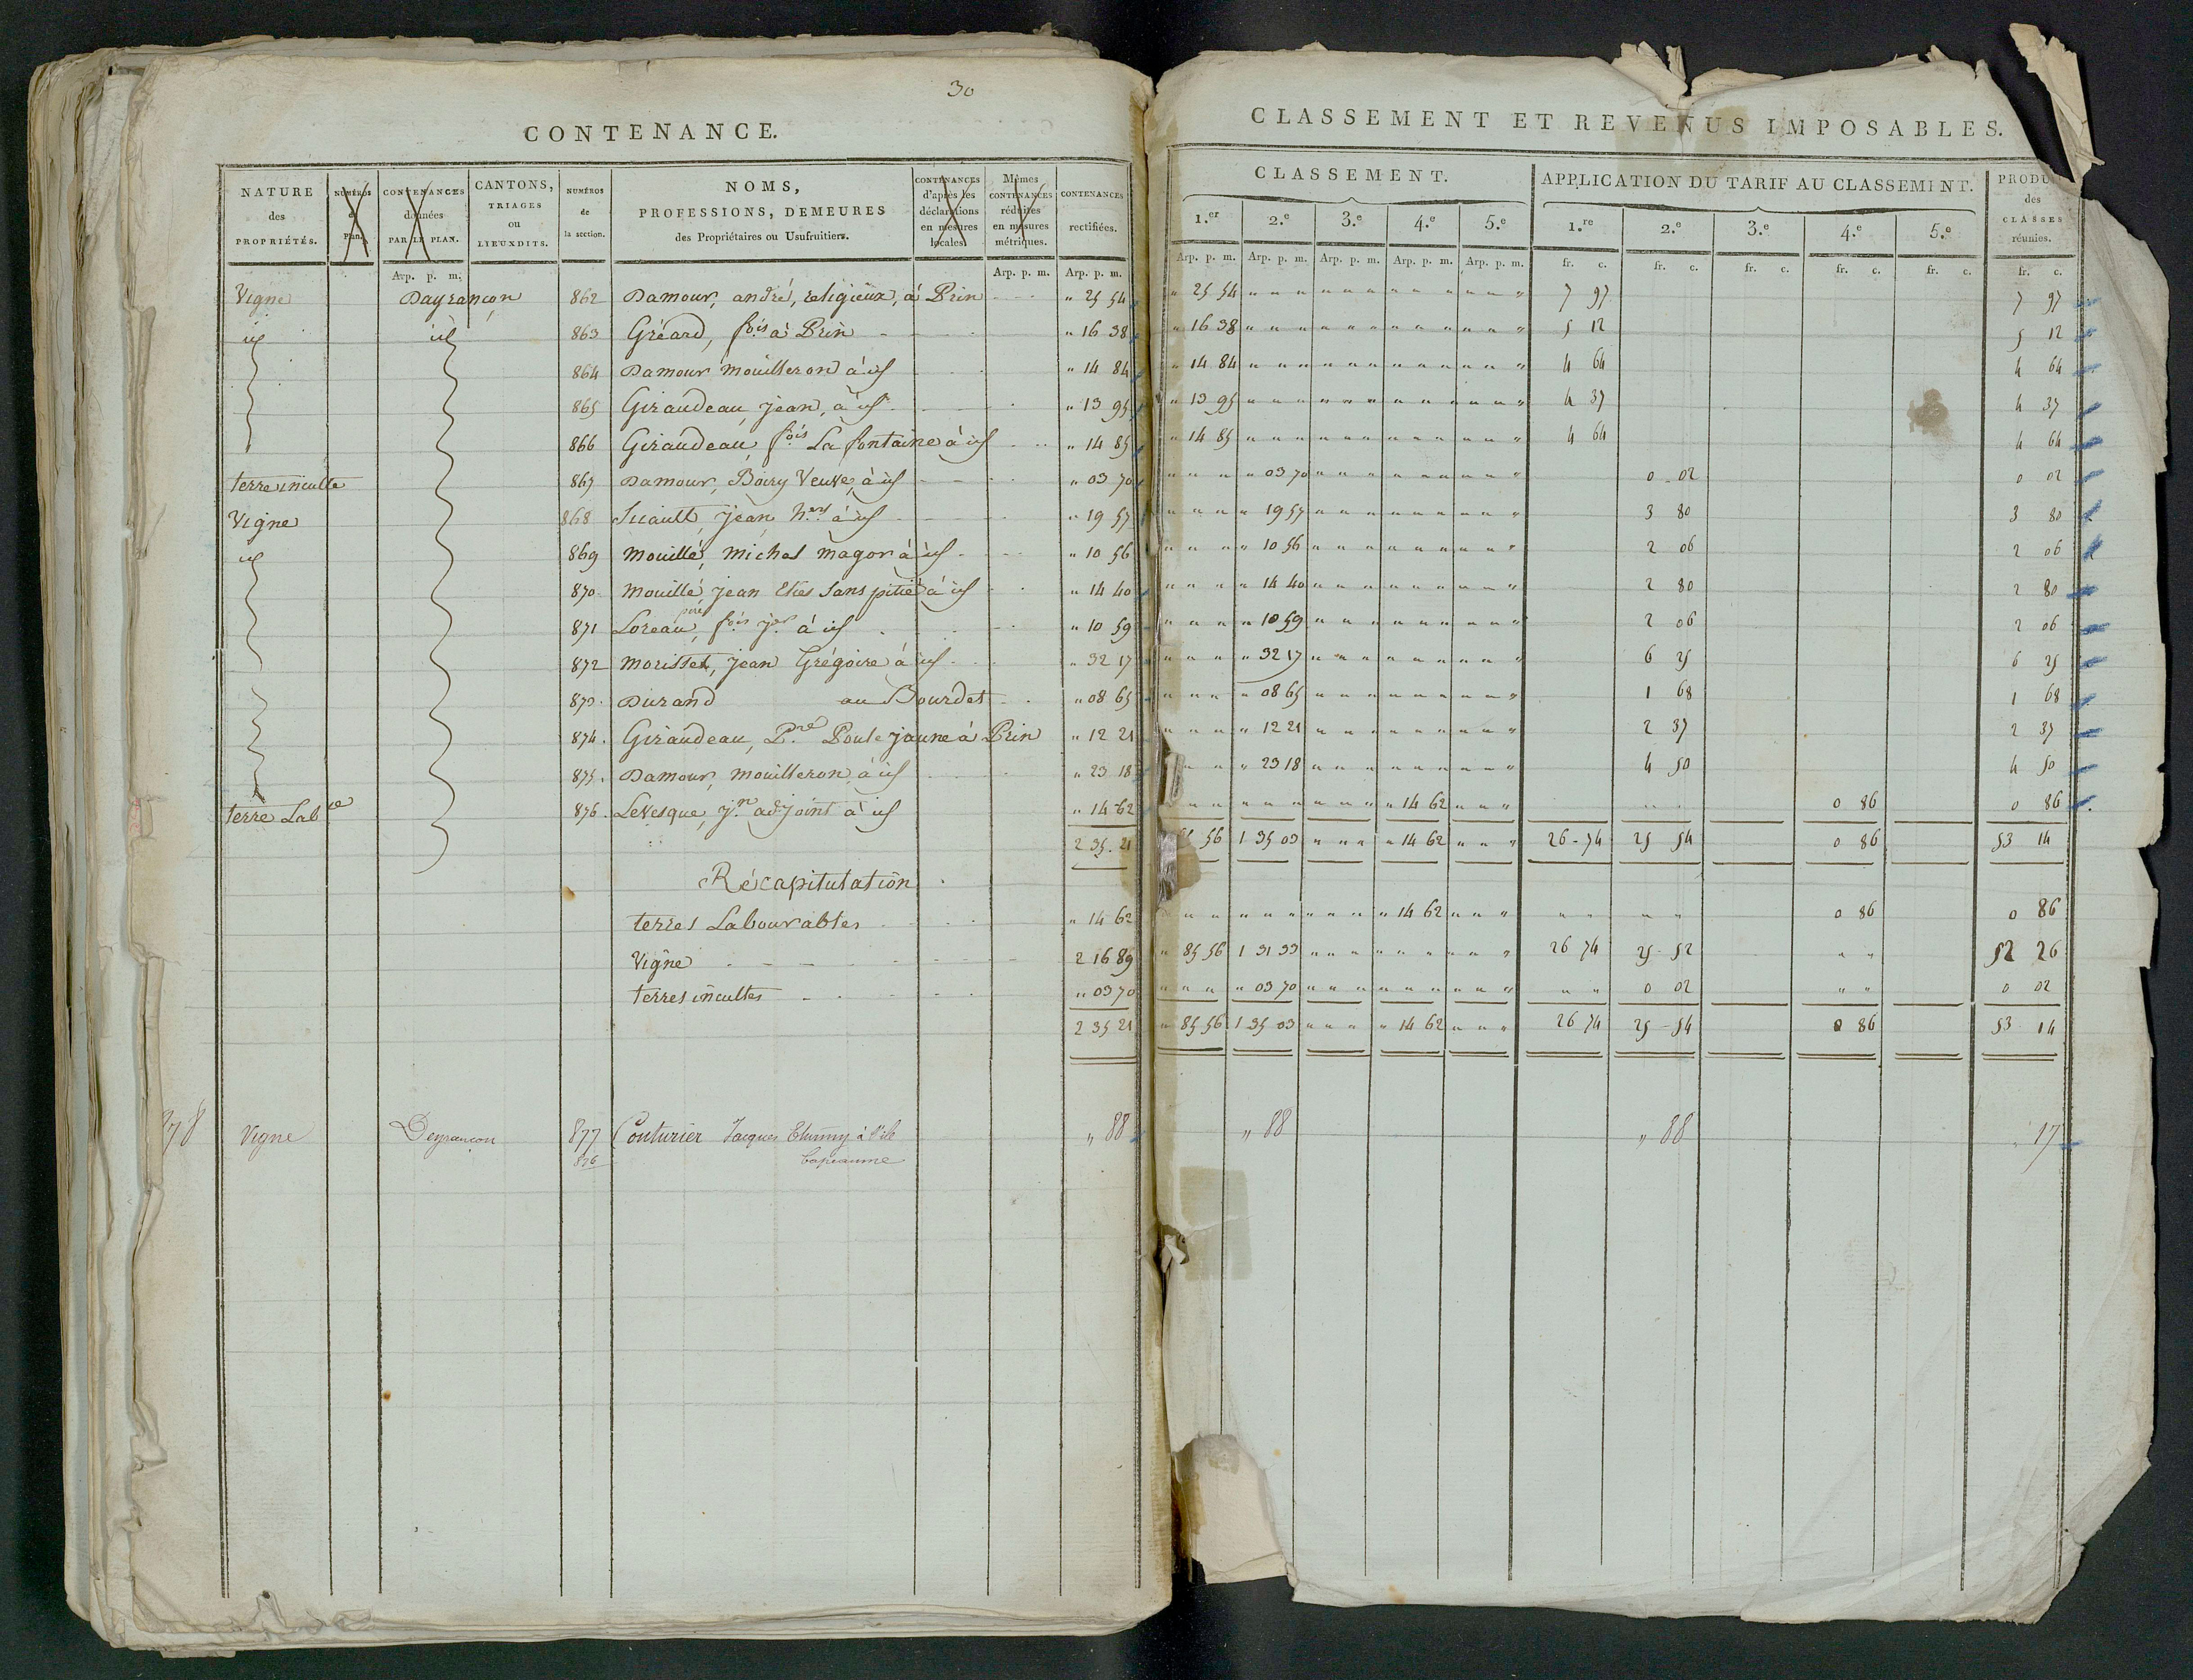 30
CONTENANCE.
CLASSEMENT ET REVENUS IMPOSABLES.
NATURE des PROPRIÉTÉS. NUMÉROS du Plan. CONTENANCES données PAR LE PLAN. CANTONS, TRIAGES ou LIEUXDITS. NUMÉROS de la section. NOMS, PROFESSIONS, DEMEURES des Propriétaires ou Usufruitiers. CONTENANCES d'après les déclarations en mesures locales. Mêmes CONTENANCES réduites en mesures métriques. CONTENANCES rectifiées.
CLASSEMENT. APPLICATION DU TARIF AU CLASSEMENT. PRODU des CLASSES réunies.
1.er 2.e 3.e 4.e 5.e 1.re 2.e 3.e 4.e 5.e
Arp. p. m. Arp. p. m. Arp. p. m. Arp. p. m. Arp. p. m. Arp. p. m. Arp. p. m. Arp. p. m. fr. c. fr. c. fr. c. fr. c. fr. c. fr. c.
Vigne Dayrançon 862 Damour, andré, religieux, à Prin " 25 54 " 25 54 7 97 7 97
id id 863 Gréard, fois à Prin " 16 38 " 16 38 5 12 5 12
864 Damour Mouilleron à id " 14 84 " 14 84 4 64 4 64
865 Giraudeau, jean, à id " 13 95 " 13 95 4 37 4 37
866 Giraudeau, fois La fontaine à id " 14 85 " 14 85 4 64 4 64
terre inculte 867 Damour, Boiry Veuve, à id " 03 70 " 03 70 0 02 0 02
Vigne 868 jean h.ers à id " 19 57 " 19 57 3 80 3 80
id 869 Mouillé, michel magon à id " 10 56 " 10 56 2 06 2 06
870 Mouillé, jean Sans pitié à id " 14 40 " 14 40 2 80 2 80
871 Loreau, fois père à id " 10 59 " 10 59 2 06 2 06
872 Morisset, jean Grégoire à id " 32 17 " 32 17 6 25 6 25
873 Durand au Bourdet " 08 65 " 08 65 1 68 1 68
874. Giraudeau, P.re Poule jaune à Prin " 12 21 " 12 21 2 37 2 37
875. Damour, Mouilleron, à id " 23 18 " 23 18 4 50 4 50
terre Lab.le 876. Levesque, j.n adjoint à id " 14 62 " 14 62 0 86 0 86
2 35. 21 85 56 1 35 03 " 14 62 26-74 25 54 0 86 53 14
Récapitulation
terres Labourables " 14 62 " 14 62 0 86 0 86
Vigne 2 16 89 " 85 56 1 31 33 26 74 25-52 52 26
terres incultes " 03 70 " 03 70 0 02 0 02
2 35 21 " 85 56 1 35 03 " 14 62 26 74 25-54 0 86 53 14
878 Vigne Deyrançon 877 Couturier Jacques à l'ile " 88 " 88 " 88 17
876 Bapeaume